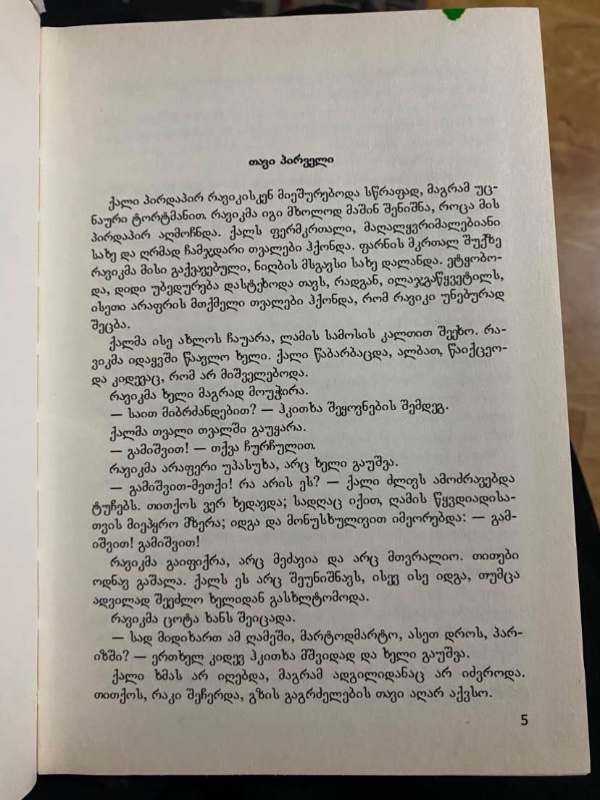 თავი პირველი
ქალი პირდაპირ რავიკისკენ მიეშურებოდა სწრაფად, მაგრამ უც-
ნაური ტორტმანით. რავიკმა იგი მხოლოდ მაშინ შენიშნა, როცა მის
პირდაპირ აღმოჩნდა. ქალს ფერმკრთალი, მაღალყვრიმალებიანი
სახე და ღრმად ჩამჯდარი თვალები ჰქონდა. ფარნის მკრთალ შუქზე
რავიკმა მისი გაქვავებული, ნიღბის მსგავსი სახე დალანდა. ეტყობო-
და, დიდი უბედურება დასტეხოდა თავს, რადგან, ილაჯგაწყვეტილს,
ისეთი არაფრის მთქმელი თვალები ჰქონდა, რომ რავიკი უნებურად
შეცბა.
ქალმა ისე ახლოს ჩაუარა, ლამის სამოსის კალთით შეეხო. რა-
ვიკმა იდაყვში წაავლო ხელი. ქალი წაბარბაცდა, ალბათ, წაიქცეო-
და კიდევაც, რომ არ მიშველებოდა.
რავიკმა ხელი მაგრად მოუჭირა.
— საით მიბრძანდებით? — ჰკითხა შეყოვნების შემდეგ.
ქალმა თვალი თვალში გაუყარა.
— გამიშვით! — თქვა ჩურჩულით.
რავიკმა არაფერი უპასუხა, არც ხელი გაუშვა.
— გამიშვით-მეთქი! რა არის ეს? — ქალი ძლივს ამოძრავებდა
ტუჩებს. თითქოს ვერ ხედავდა; სადღაც იქით, ღამის წყვდიადისა-
თვის მიეპყრო მზერა; იდგა და მონუსხულივით იმეორებდა: — გამ-
იშვით! გამიშვით!
რავიკმა გაიფიქრა, არც მეძავია და არც მთვრალიო. თითები
ოდნავ გაშალა. ქალს ეს არც შეუნიშნავს, ისევ ისე იდგა, თუმცა
ადვილად შეეძლო ხელიდან გასხლტომოდა.
რავიკმა ცოტა ხანს შეიცადა.
— სად მიდიხართ ამ ღამეში, მარტოდმარტო, ასეთ დროს, პარ-
იზში? — ერთხელ კიდევ ჰკითხა მშვიდად და ხელი გაუშვა.
ქალი ხმას არ იღებდა, მაგრამ ადგილიდანაც არ იძვროდა.
თითქოს, რაკი შეჩერდა, გზის გაგრძელების თავი აღარ აქვსო.
5